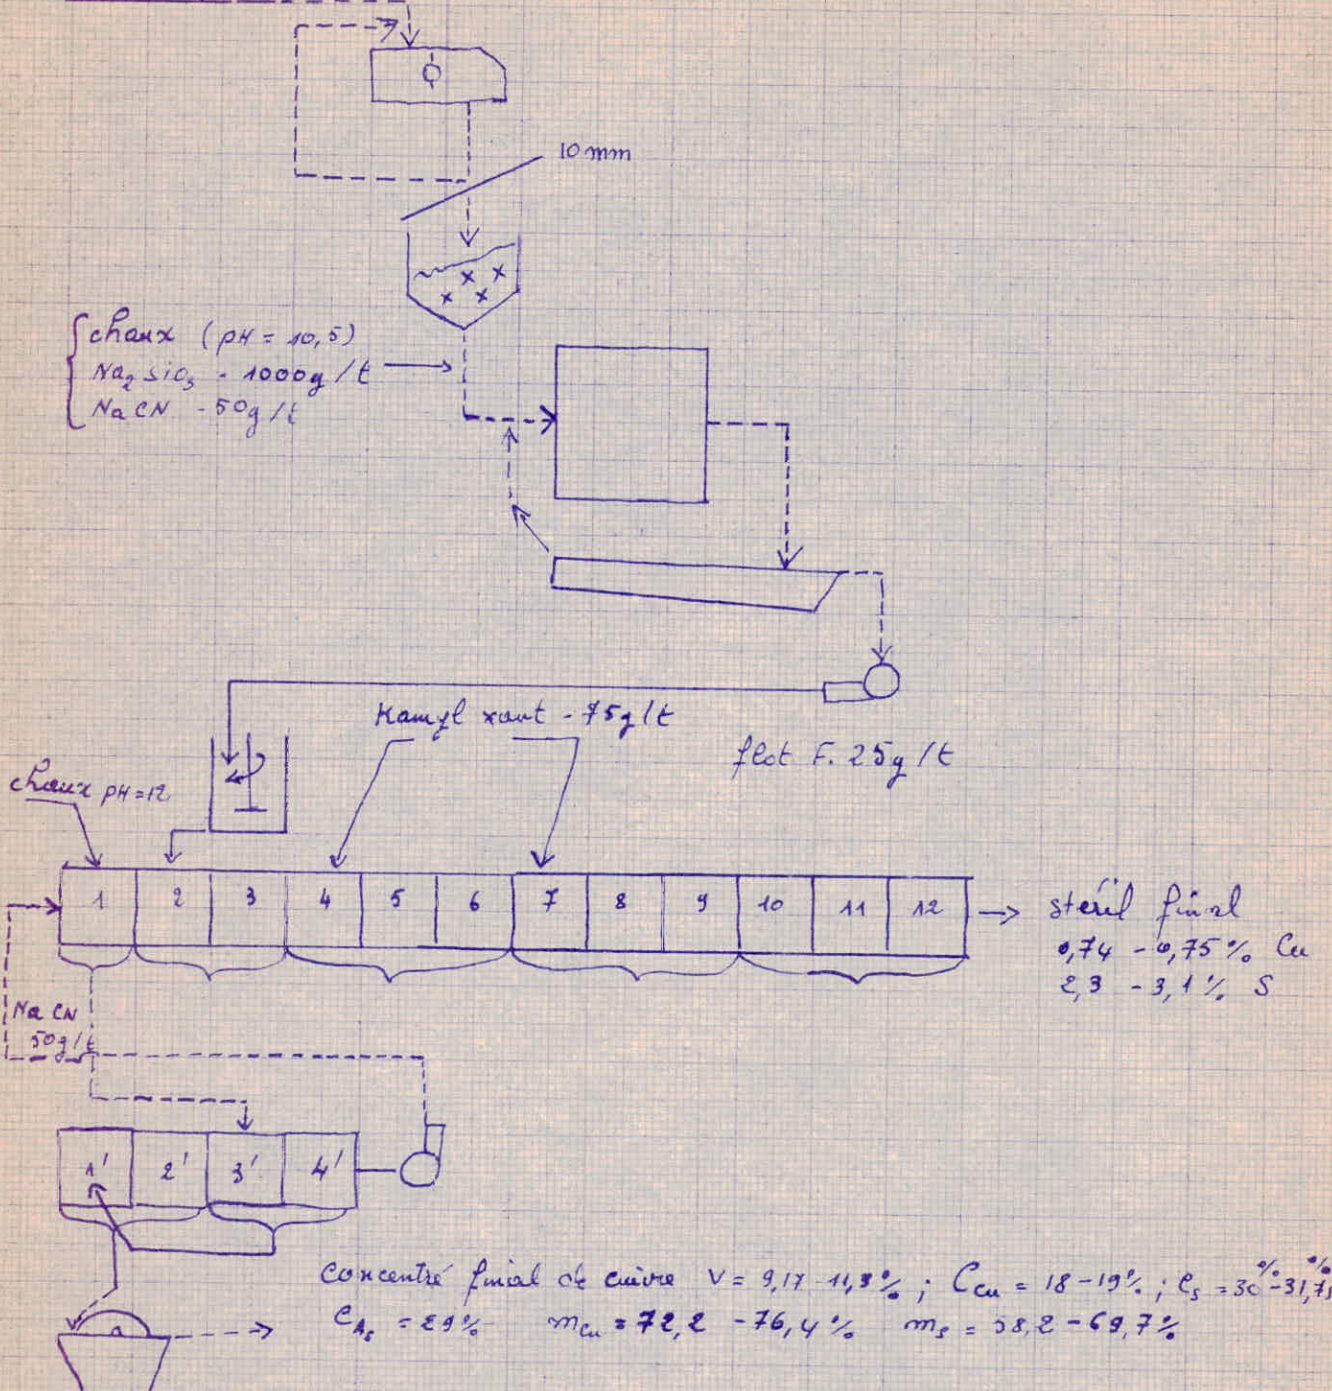 10 mm
chaux (pH = 10,5)
Na2 SiO3 - 1000g/t
NaCN - 50g/t
Kamyl xant - 75g/t
flot F. 25g/t
chaux pH=12
1 2 3 4 5 6 7 8 9 10 11 12
stéril final
0,74 - 0,75% Cu
2,3 - 3,1% S
NaCN
50g/t
1' 2' 3' 4'
concentré final de cuivre V = 9,17 - 11,3%; Ccu = 18-19%; Cs = 30% - 31,75%
CAs = 29% mcu = 72,2 - 76,4% ms = 58,2 - 69,7%